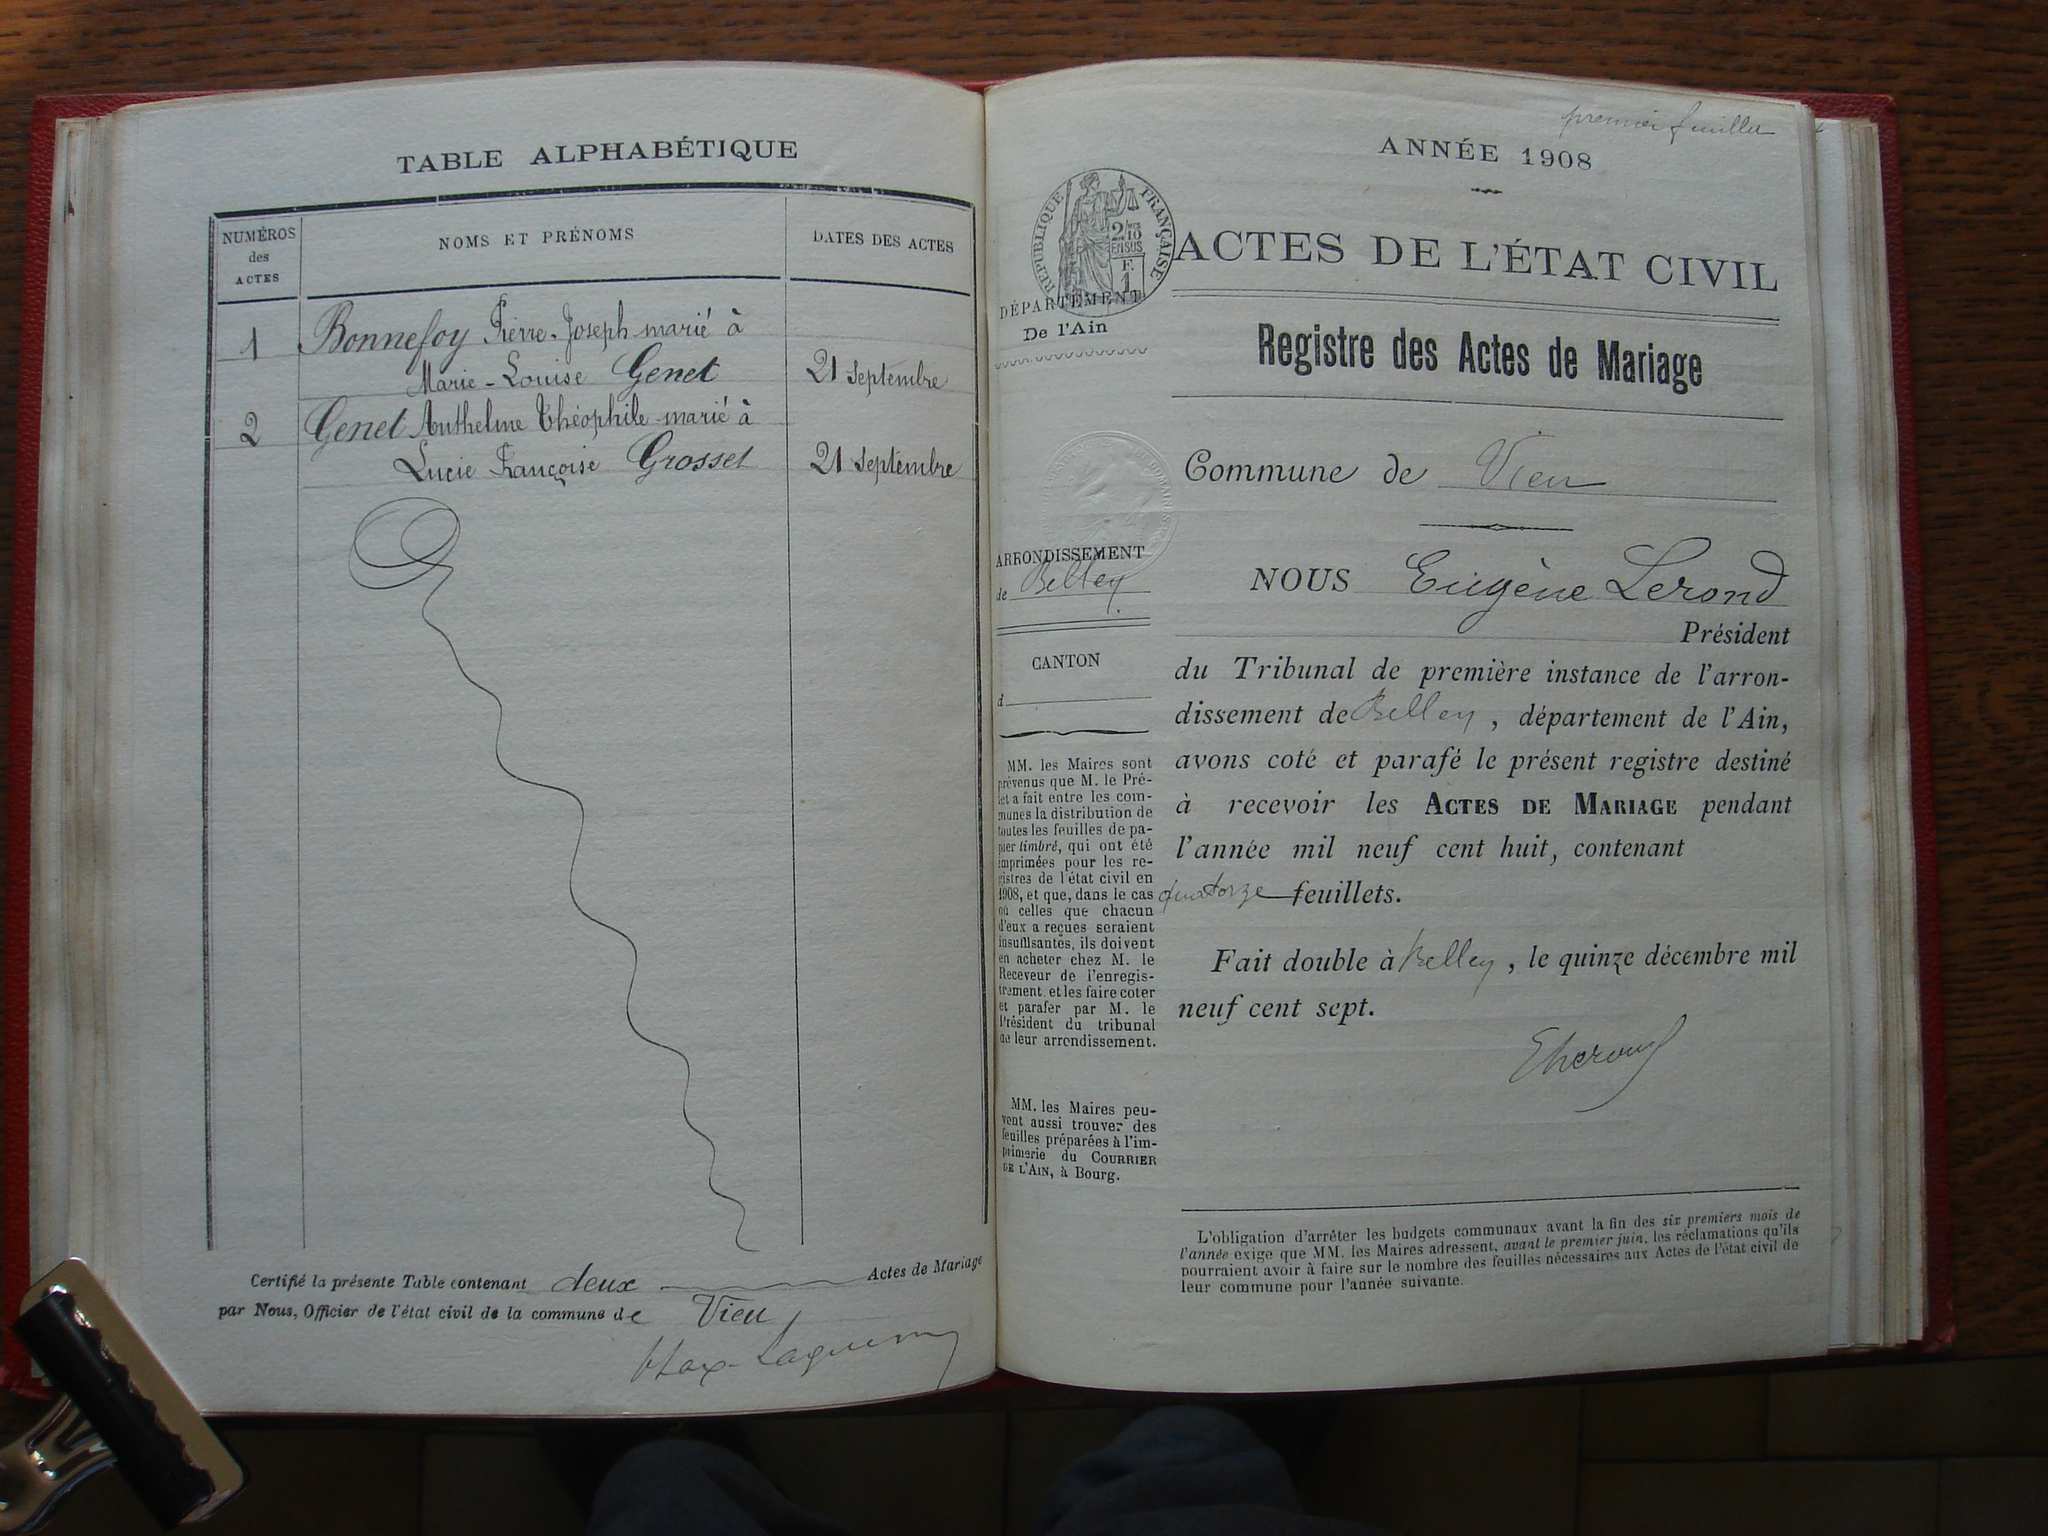 TABLE ALPHABÉTIQUE
NUMÉROS
des
ACTES
NOMS ET PRÉNOMS
DATES DES ACTES
1
Bonnefoy Pierre-Joseph marié à
Marie-Louise Genet
21 Septembre
2
Genet Anthelme Théophile marié à
Lucie Françoise Grosset
21 Septembre
Certifié la présente Table contenant deux Actes de Mariage
par Nous, Officier de l'état civil de la commune de Vieu
premier feuillet
ANNÉE 1908
RÉPUBLIQUE FRANÇAISE
2/10
EN SUS
F.
1
ACTES DE L'ÉTAT CIVIL
DÉPARTEMENT
De l'Ain
Registre des Actes de Mariage
Commune de Vieu
ARRONDISSEMENT
de Belley
CANTON
d
MM. les Maires sont
prévenus que M. le Pré-
fet a fait entre les com-
munes la distribution de
toutes les feuilles de pa-
pier timbré, qui ont été
imprimées pour les re-
gistres de l'état civil en
1908, et que, dans le cas
où celles que chacun
d'eux a reçues seraient
insuffisantes, ils doivent
en acheter chez M. le
Receveur de l'enregis-
trement, et les faire coter
et parafer par M. le
Président du tribunal
de leur arrondissement.
MM. les Maires peu-
vent aussi trouver des
feuilles préparées à l'im-
primerie du COURRIER
DE L'AIN, à Bourg.
NOUS Eugène Lerond
Président
du Tribunal de première instance de l'arron-
dissement de Belley, département de l'Ain,
avons coté et parafé le présent registre destiné
à recevoir les ACTES DE MARIAGE pendant
l'année mil neuf cent huit, contenant
quatorze feuillets.
Fait double à Belley, le quinze décembre mil
neuf cent sept.
L'obligation d'arrêter les budgets communaux avant la fin des six premiers mois de
l'année exige que MM. les Maires adressent, avant le premier juin, les réclamations qu'ils
pourraient avoir à faire sur le nombre des feuilles nécessaires aux Actes de l'état civil de
leur commune pour l'année suivante.